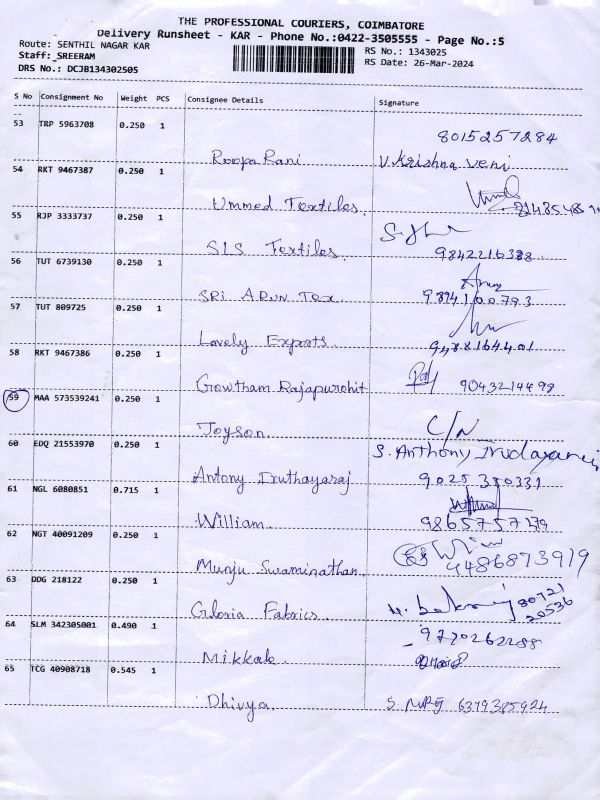 THE PROFESSIONAL COURIERS, COIMBATORE
Delivery Runsheet - KAR - Phone No.:0422-3505555 - Page No.:5
Route: SENTHIL NAGAR KAR
RS No.: 1343025
Staff: SREERAM
RS Date: 26-Mar-2024
DRS No.: DCJB134302505
S No Consignment No Weight PCS Consignee Details Signature
53 TRP 5963708 0.250 1
8015257284
Roopa Rani V. Krishna veni
54 RKT 9467387 0.250 1
Ummed Textiles.
55 RJP 3333737 0.250 1
SLS Textiles. 9842216388
56 TUT 6739130 0.250 1
SRI ARUN Tex 9894160793
57 TUT 809725 0.250 1
Lovely Exports.
58 RKT 9467386 0.250 1
Gowtham Rajapurohit
59 MAA 573539241 0.250 1
Joyson. C/N
60 EDQ 21553970 0.250 1 S. Anthony
Antony Iruthayaraj 9025350331
61 NGL 6080851 0.715 1
William.
62 NGT 40091209 0.250 1
Munju Swaminathan.
63 DDG 218122 0.250 1
Gloria Fabrics.
64 SLM 342305001 0.490 1
Mikkak.
65 TCG 40908718 0.545 1
Dhivya 6379385924